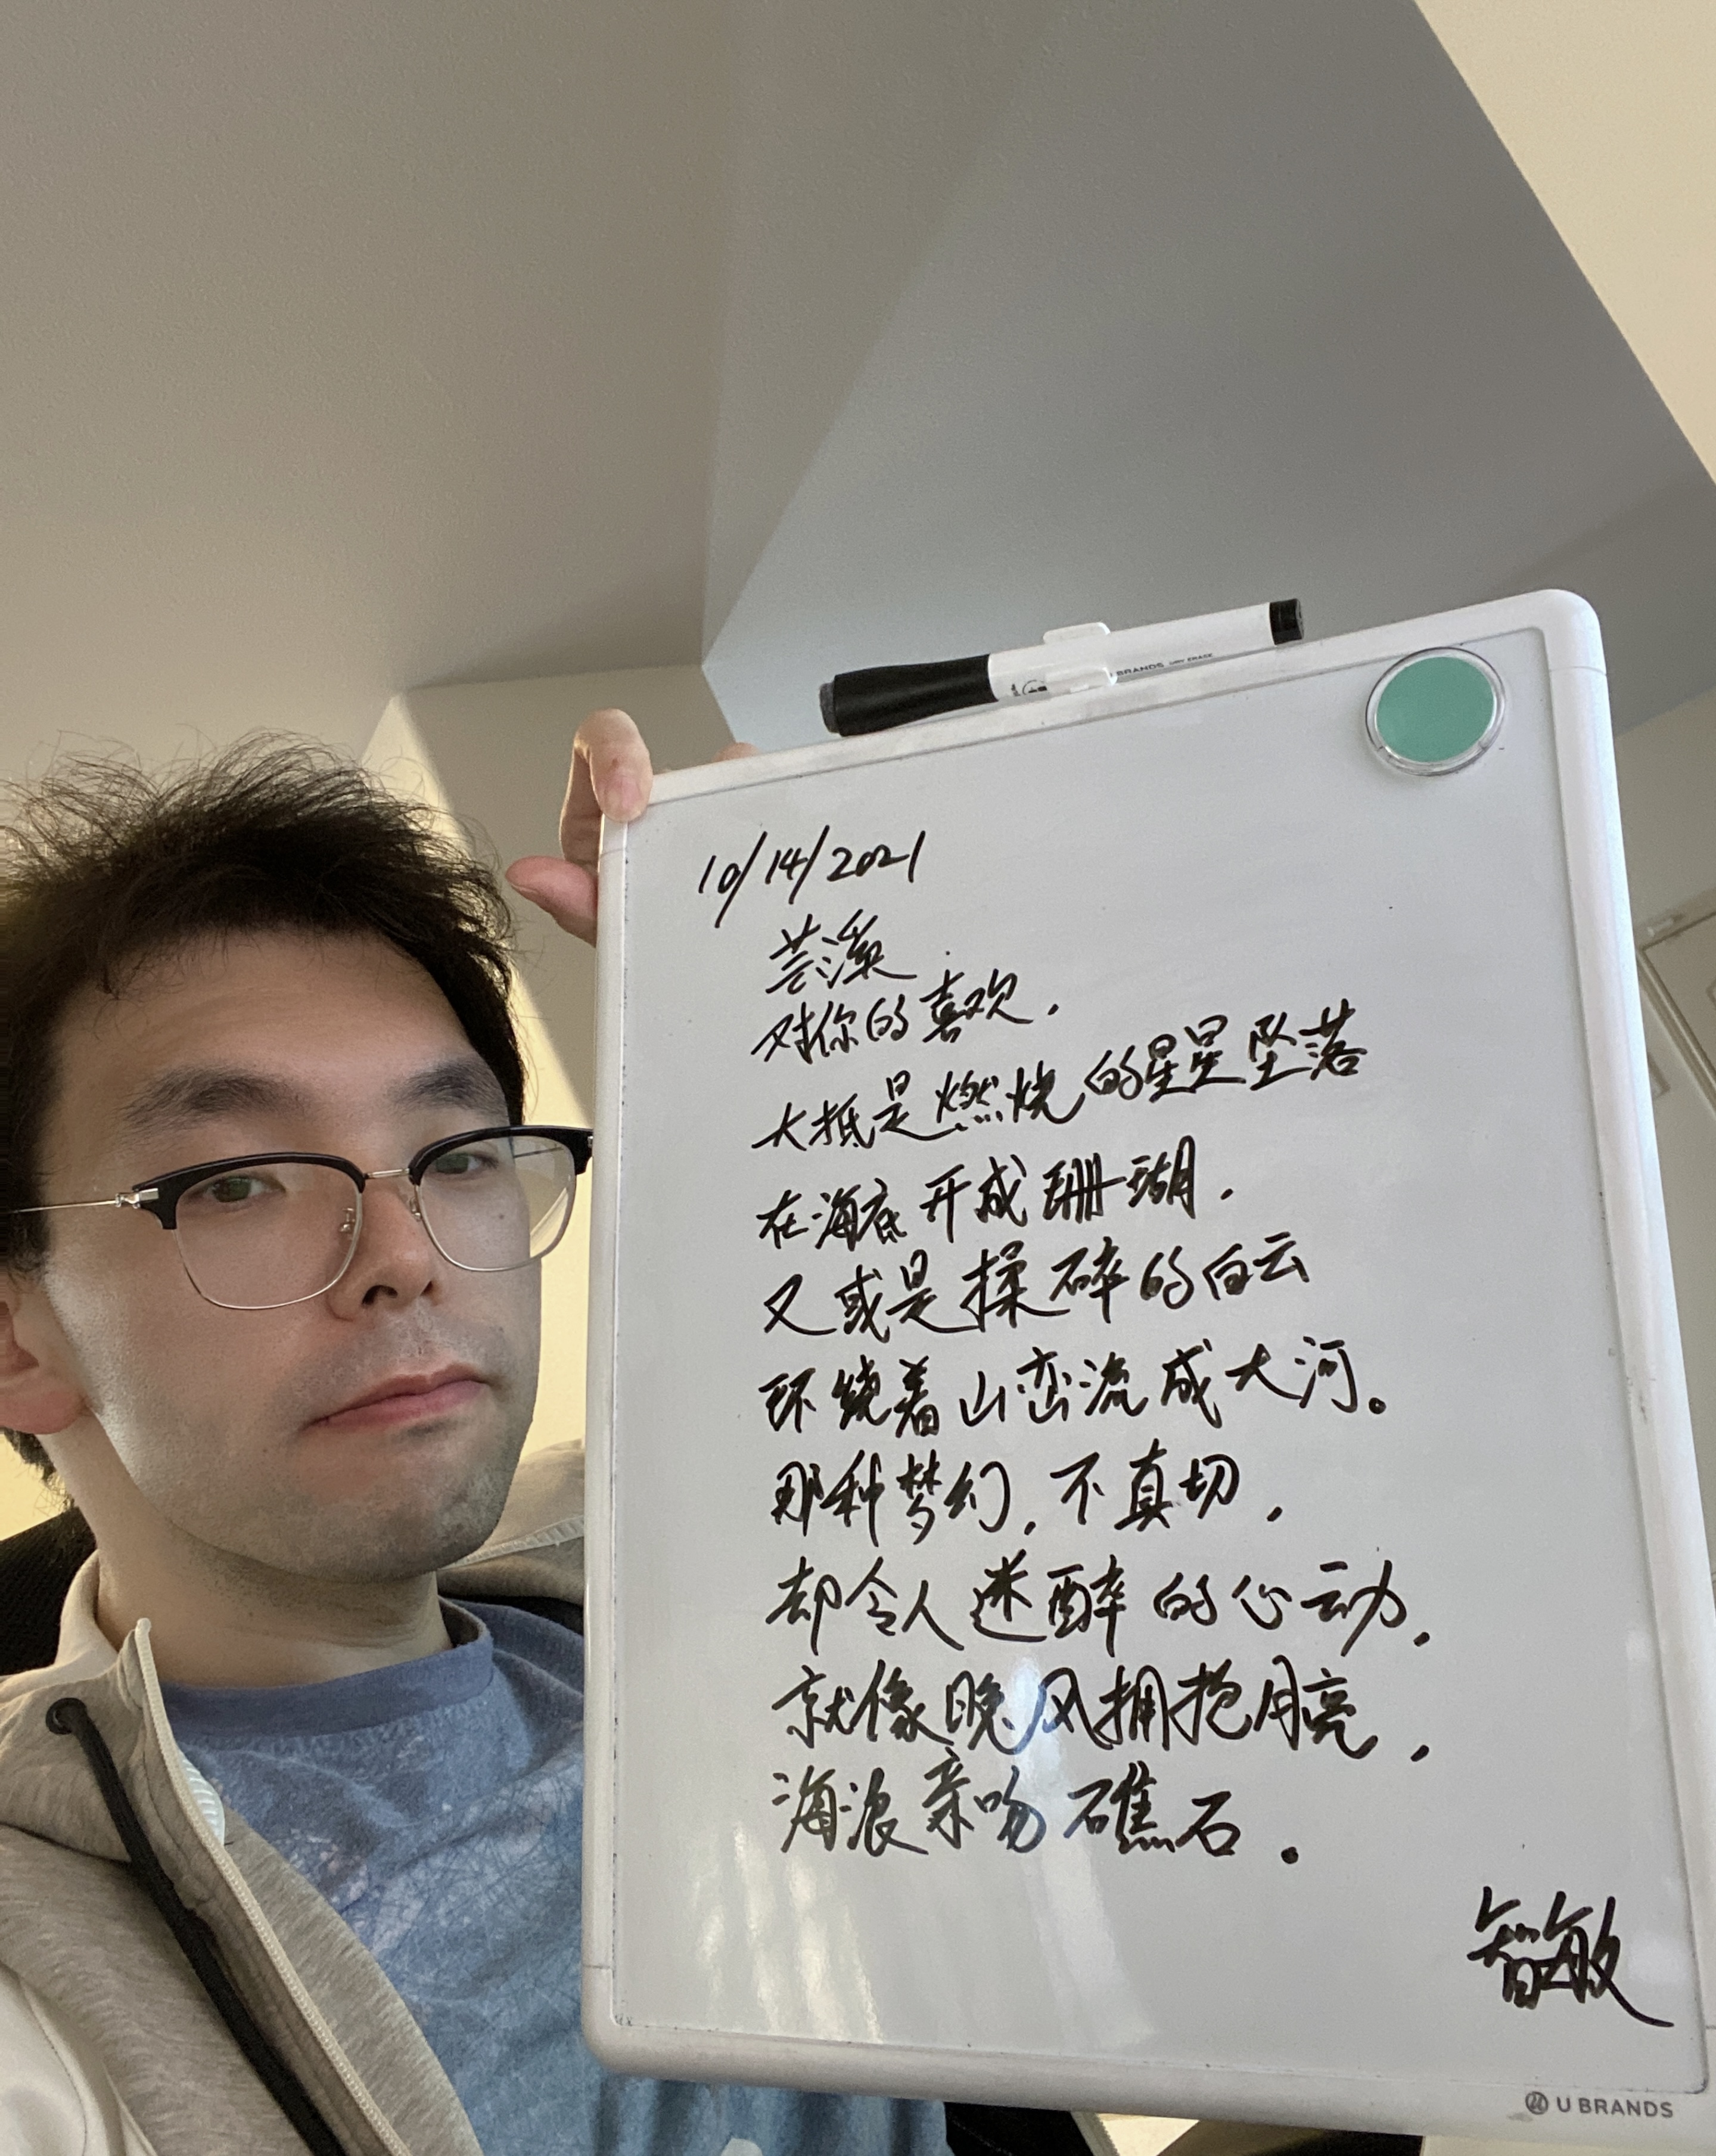 BRANDS DRY ERASE
10/14/2021
芸溪.
对你的喜欢,
大抵是燃烧的星星坠落
在海底开成珊瑚,
又或是揉碎的白云
环绕着山峦流成大河。
那种梦幻,不真切,
却令人迷醉的心动,
就像晚风拥抱月亮,
海浪亲吻礁石.
智敏
U BRANDS